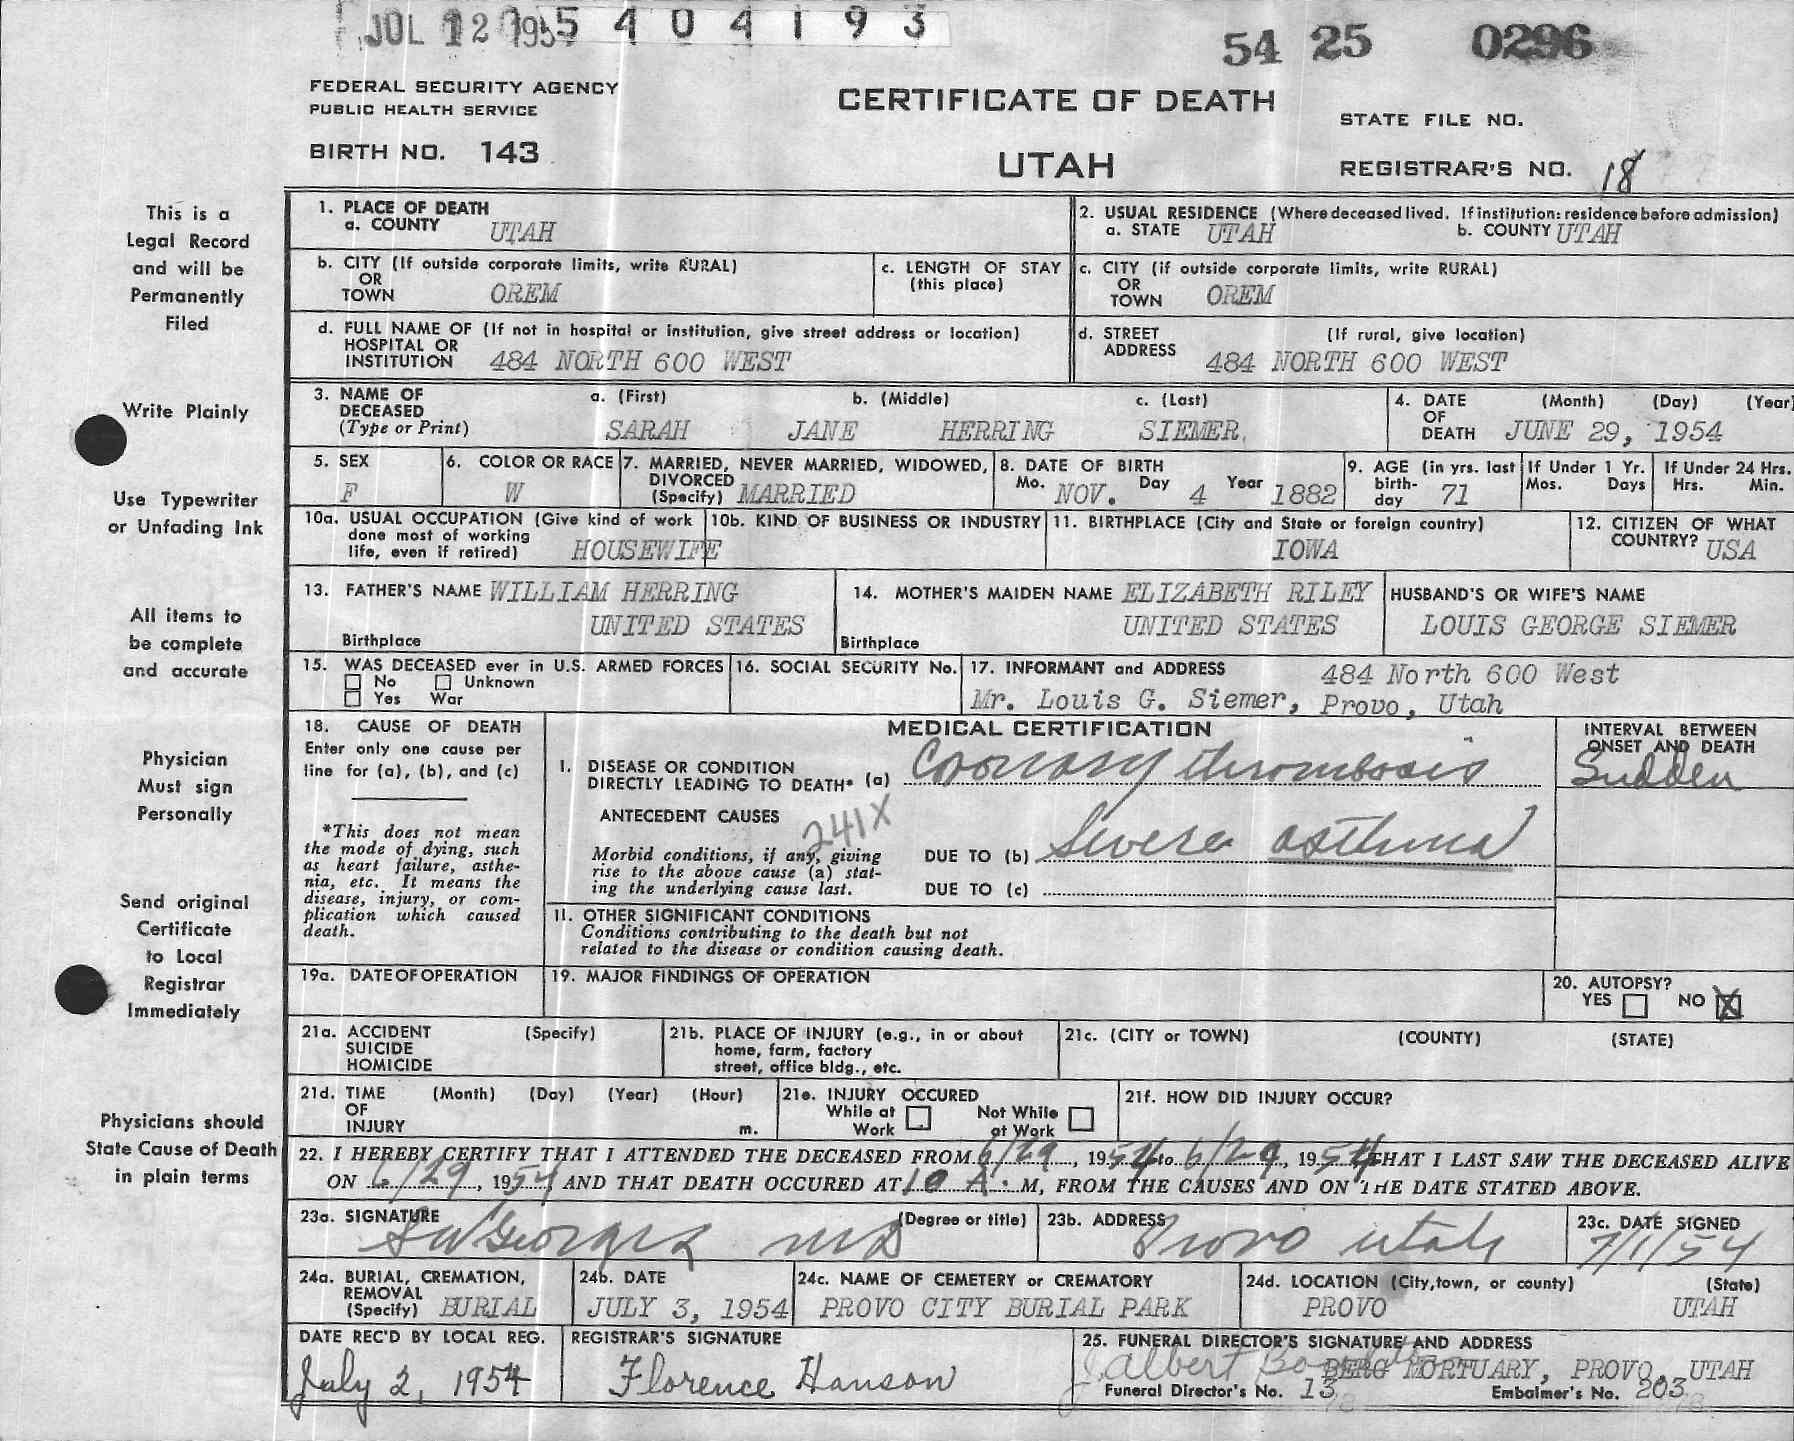 JUL 12 195
5404193
54 25 0296
FEDERAL SECURITY AGENCY
PUBLIC HEALTH SERVICE
BIRTH NO. 143
CERTIFICATE OF DEATH
UTAH
STATE FILE NO.
REGISTRAR'S NO. 18
This is a
Legal Record
and will be
Permanently
Filed
Write Plainly
Use Typewriter
or Unfading Ink
All items to
be complete
and accurate
Physician
Must sign
Personally
Send original
Certificate
to Local
Registrar
Immediately
Physicians should
State Cause of Death
in plain terms
1. PLACE OF DEATH
a. COUNTY UTAH
2. USUAL RESIDENCE (Where deceased lived. If institution: residence before admission)
a. STATE UTAH b. COUNTY UTAH
b. CITY (If outside corporate limits, write RURAL)
OR
TOWN OREM
c. LENGTH OF STAY
(this place)
c. CITY (if outside corporate limits, write RURAL)
OR
TOWN OREM
d. FULL NAME OF (If not in hospital or institution, give street address or location)
HOSPITAL OR
INSTITUTION 484 NORTH 600 WEST
d. STREET (If rural, give location)
ADDRESS 484 NORTH 600 WEST
3. NAME OF DECEASED
(Type or Print)
a. (First) b. (Middle) c. (Last)
SARAH JANE HERRING SIEMER.
4. DATE (Month) (Day) (Year)
OF
DEATH JUNE 29, 1954
5. SEX
F
6. COLOR OR RACE
W
7. MARRIED, NEVER MARRIED, WIDOWED,
DIVORCED
(Specify) MARRIED
8. DATE OF BIRTH
Mo. NOV. Day 4 Year 1882
9. AGE (in yrs. last
birth-
day 71
If Under 1 Yr.
Mos. Days
If Under 24 Hrs.
Hrs. Min.
10a. USUAL OCCUPATION (Give kind of work
done most of working
life, even if retired) HOUSEWIFE
10b. KIND OF BUSINESS OR INDUSTRY
11. BIRTHPLACE (City and State or foreign country)
IOWA
12. CITIZEN OF WHAT
COUNTRY? USA
13. FATHER'S NAME WILLIAM HERRING
UNITED STATES
Birthplace
14. MOTHER'S MAIDEN NAME ELIZABETH RILEY
UNITED STATES
Birthplace
HUSBAND'S OR WIFE'S NAME
LOUIS GEORGE SIEMER
15. WAS DECEASED ever in U.S. ARMED FORCES
No Unknown
Yes War
16. SOCIAL SECURITY No.
17. INFORMANT and ADDRESS 484 North 600 West
Mr. Louis G. Siemer, Provo, Utah
18. CAUSE OF DEATH
Enter only one cause per
line for (a), (b), and (c)
*This does not mean
the mode of dying, such
as heart failure, asthe-
nia, etc. It means the
disease, injury, or com-
plication which caused
death.
MEDICAL CERTIFICATION
I. DISEASE OR CONDITION
DIRECTLY LEADING TO DEATH* (a) Coronary thrombosis
INTERVAL BETWEEN
ONSET AND DEATH
Sudden
ANTECEDENT CAUSES
241X
Morbid conditions, if any, giving
rise to the above cause (a) stat-
ing the underlying cause last.
DUE TO (b) Severe asthma
DUE TO (c)
II. OTHER SIGNIFICANT CONDITIONS
Conditions contributing to the death but not
related to the disease or condition causing death.
19a. DATE OF OPERATION
19. MAJOR FINDINGS OF OPERATION
20. AUTOPSY?
YES NO X
21a. ACCIDENT (Specify)
SUICIDE
HOMICIDE
21b. PLACE OF INJURY (e.g., in or about
home, farm, factory
street, office bldg., etc.
21c. (CITY or TOWN) (COUNTY) (STATE)
21d. TIME (Month) (Day) (Year) (Hour)
OF
INJURY m.
21e. INJURY OCCURED
While at Work
Not While at Work
21f. HOW DID INJURY OCCUR?
22. I HEREBY CERTIFY THAT I ATTENDED THE DECEASED FROM 6/29, 1954 to 6/29, 1954 THAT I LAST SAW THE DECEASED ALIVE
ON 6/29, 1954 AND THAT DEATH OCCURED AT 10 A. M, FROM THE CAUSES AND ON THE DATE STATED ABOVE.
23a. SIGNATURE (Degree or title)
SW Georges MD
23b. ADDRESS
Provo Utah
23c. DATE SIGNED
7/1/54
24a. BURIAL, CREMATION,
REMOVAL
(Specify) BURIAL
24b. DATE
JULY 3, 1954
24c. NAME OF CEMETERY or CREMATORY
PROVO CITY BURIAL PARK
24d. LOCATION (City, town, or county) (State)
PROVO UTAH
DATE REC'D BY LOCAL REG.
July 2, 1954
REGISTRAR'S SIGNATURE
Florence Hanson
25. FUNERAL DIRECTOR'S SIGNATURE AND ADDRESS
Albert
BERG MORTUARY, PROVO, UTAH
Funeral Director's No. 13 Embalmer's No. 203